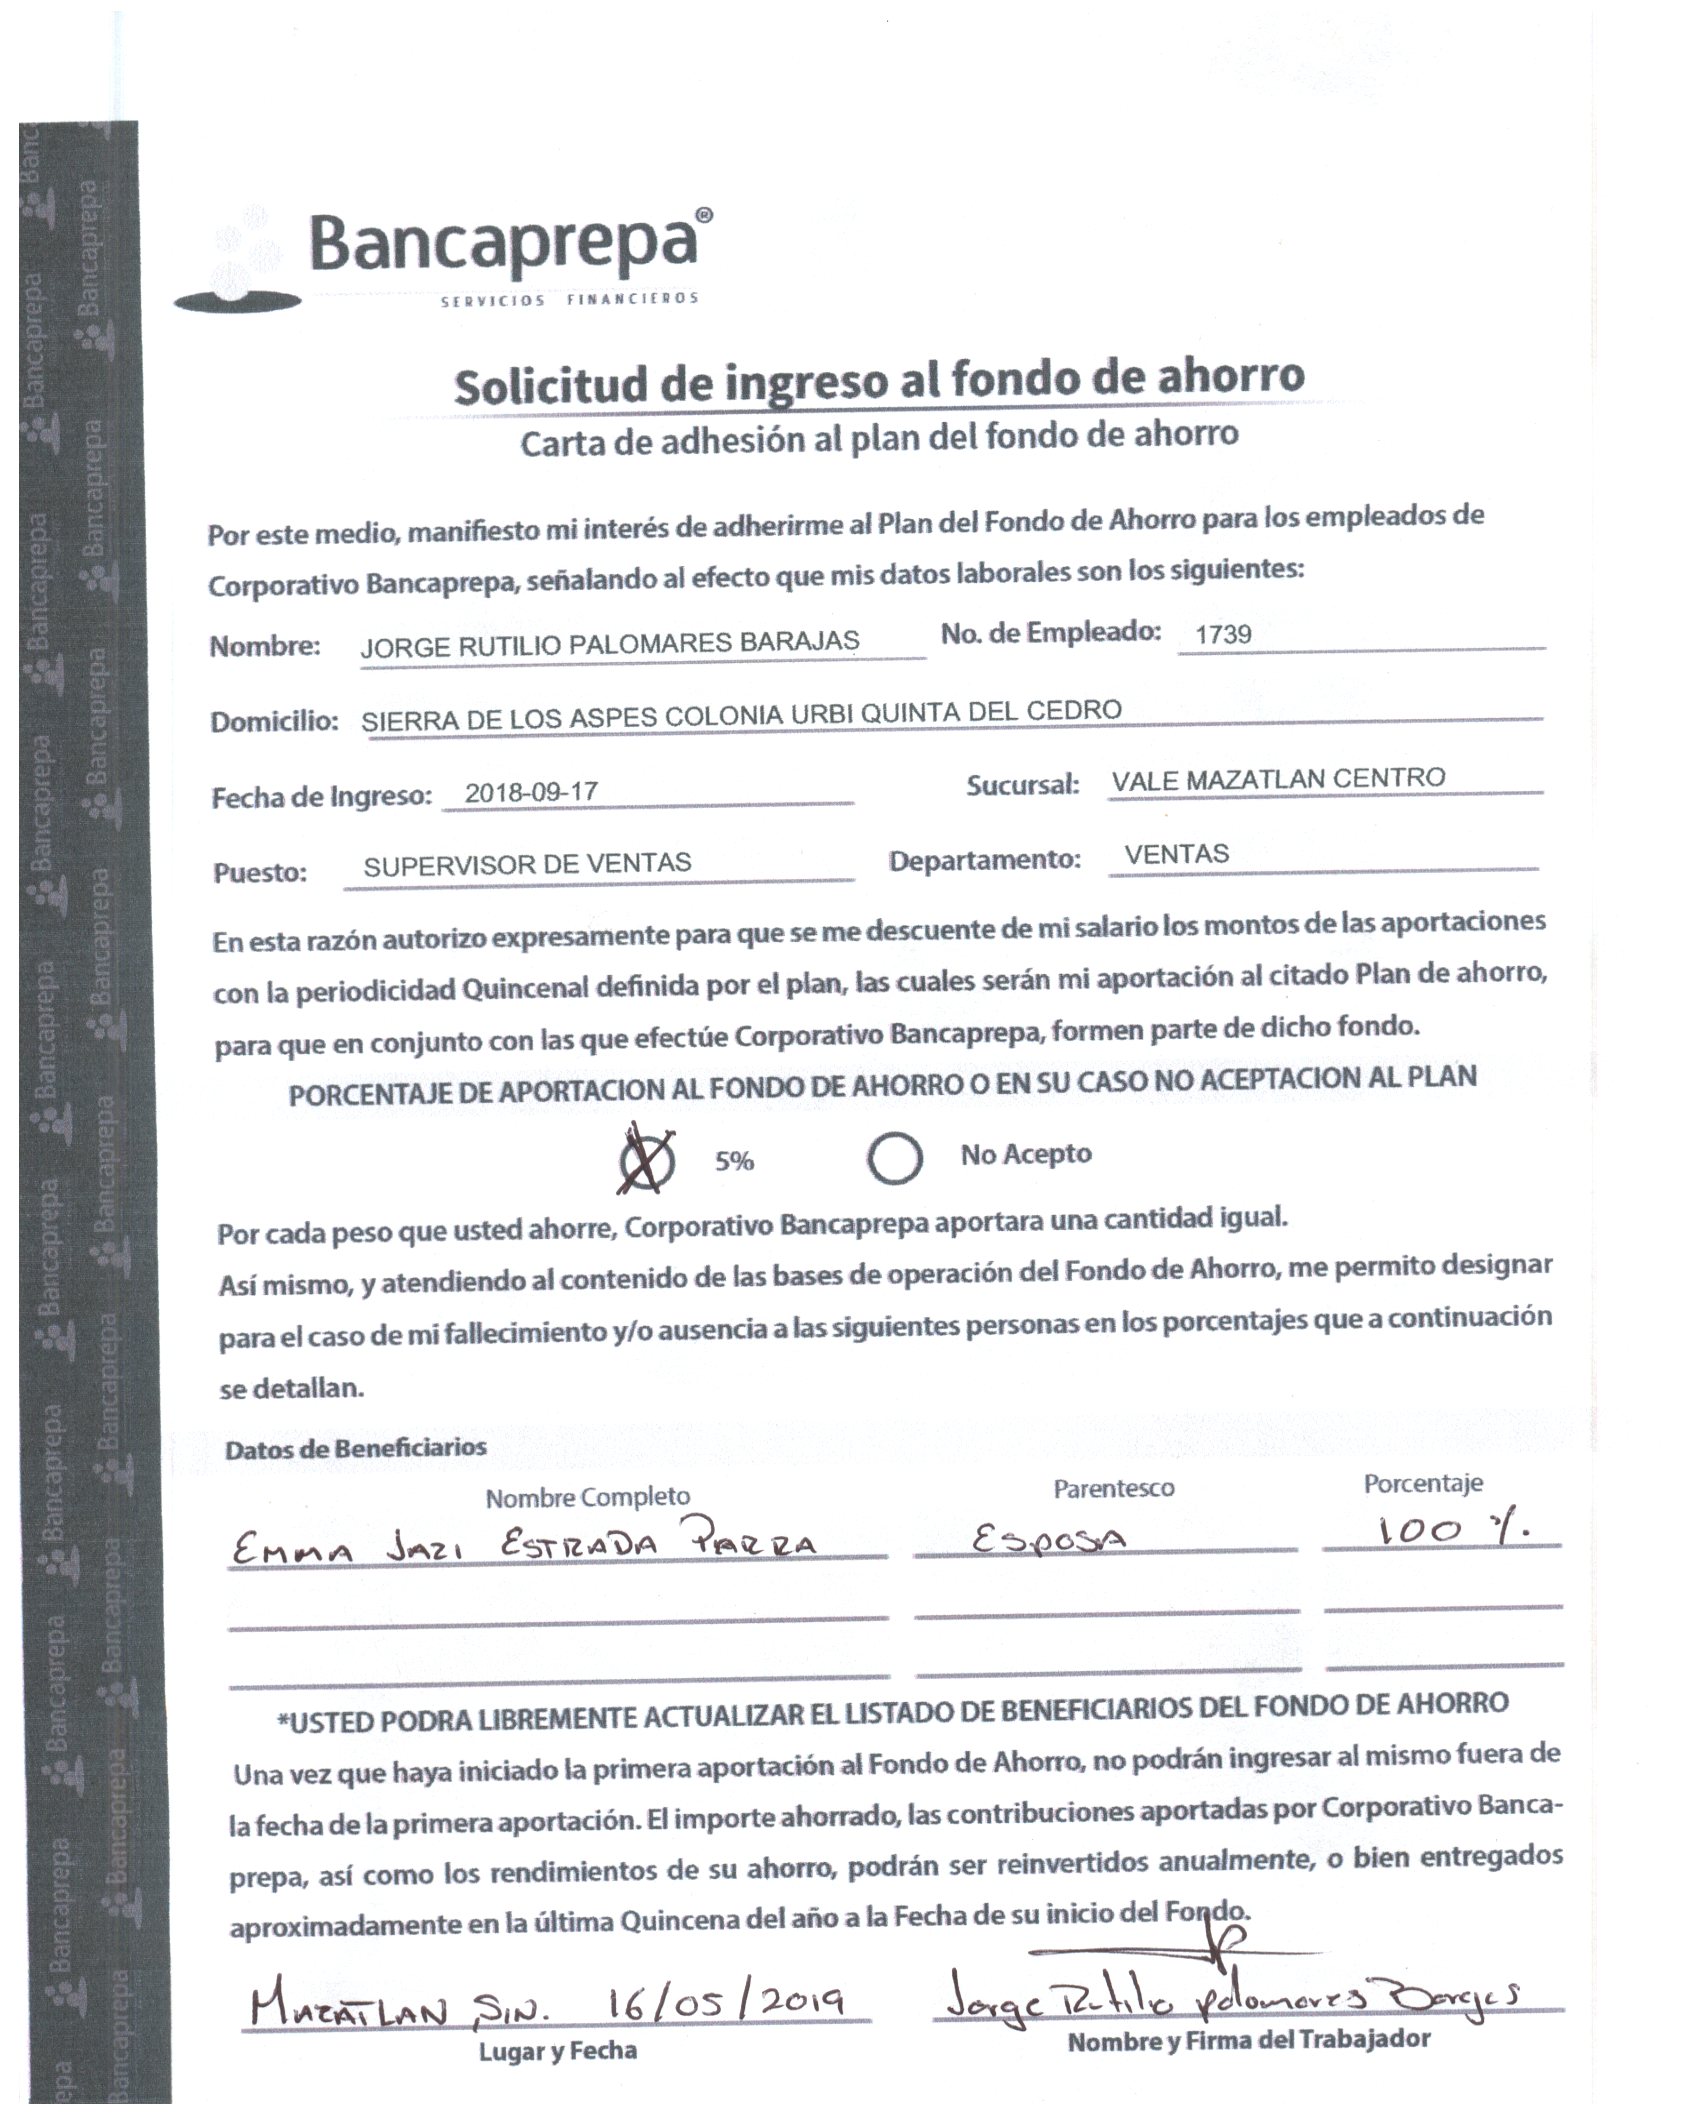 Bancaprepa®
SERVICIOS FINANCIEROS
Solicitud de ingreso al fondo de ahorro
Carta de adhesión al plan del fondo de ahorro
Por este medio, manifiesto mi interés de adherirme al Plan del Fondo de Ahorro para los empleados de
Corporativo Bancaprepa, señalando al efecto que mis datos laborales son los siguientes:
Nombre: JORGE RUTILIO PALOMARES BARAJAS No. de Empleado: 1739
Domicilio: SIERRA DE LOS ASPES COLONIA URBI QUINTA DEL CEDRO
Fecha de Ingreso: 2018-09-17 Sucursal: VALE MAZATLAN CENTRO
Puesto: SUPERVISOR DE VENTAS Departamento: VENTAS
En esta razón autorizo expresamente para que se me descuente de mi salario los montos de las aportaciones
con la periodicidad Quincenal definida por el plan, las cuales serán mi aportación al citado Plan de ahorro,
para que en conjunto con las que efectúe Corporativo Bancaprepa, formen parte de dicho fondo.
PORCENTAJE DE APORTACION AL FONDO DE AHORRO O EN SU CASO NO ACEPTACION AL PLAN
5% No Acepto
Por cada peso que usted ahorre, Corporativo Bancaprepa aportara una cantidad igual.
Así mismo, y atendiendo al contenido de las bases de operación del Fondo de Ahorro, me permito designar
para el caso de mi fallecimiento y/o ausencia a las siguientes personas en los porcentajes que a continuación
se detallan.
Datos de Beneficiarios
Nombre Completo Parentesco Porcentaje
EMMA JAZI ESTRADA PARRA ESPOSA 100 %.
*USTED PODRA LIBREMENTE ACTUALIZAR EL LISTADO DE BENEFICIARIOS DEL FONDO DE AHORRO
Una vez que haya iniciado la primera aportación al Fondo de Ahorro, no podrán ingresar al mismo fuera de
la fecha de la primera aportación. El importe ahorrado, las contribuciones aportadas por Corporativo Banca-
prepa, así como los rendimientos de su ahorro, podrán ser reinvertidos anualmente, o bien entregados
aproximadamente en la última Quincena del año a la Fecha de su inicio del Fondo.
MAZATLAN SIN. 16/05/2019 Jorge Rutilio palomares Barajas
Lugar y Fecha Nombre y Firma del Trabajador